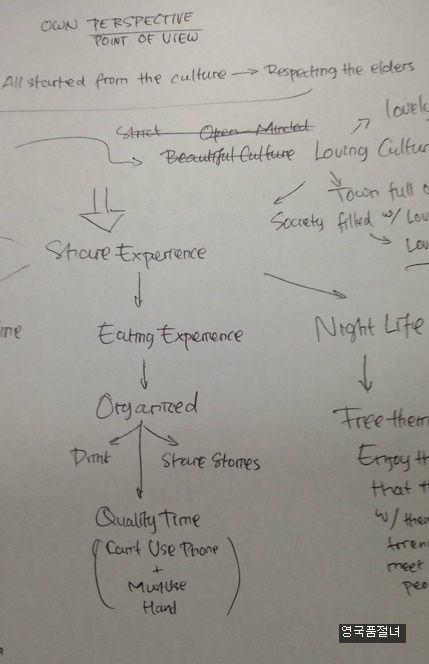 OWN PERSPECTIVE
POINT OF VIEW
All started from the culture → Respecting the elders
lovely
Strict Open-Minded
Beautiful Culture Loving Cultur
Town full o
Society filled w/ Lov
Lov
Share Experience
ine
Eating Experience
Night Life
Organized
Free them
Drink
Share Stories
Enjoy th
that th
Quality Time
w/ them
(Can't Use Phone
meet
+
Must Use
peo
Hand)
영국품절녀